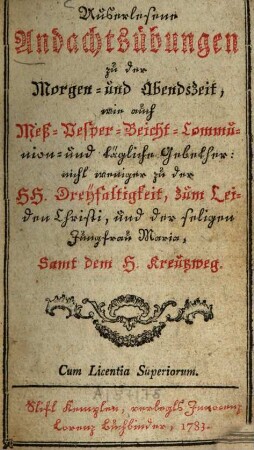 Auserlesene
Andachtsübungen
zu der
Morgen- und Abendszeit,
wie auch
Meß- Vesper- Beicht- Commu-
nion- und tägliche Gebether:
nicht weniger zu der
HH. Dreyfaltigkeit, zum Lei-
den Christi, und der seligen
Jungfrau Maria,
Samt dem H. Kreutzweg.
Cum Licentia Superiorum.
Stift Kempten, verlegts Innocenz
Lorenz Buchbinder, 1783.